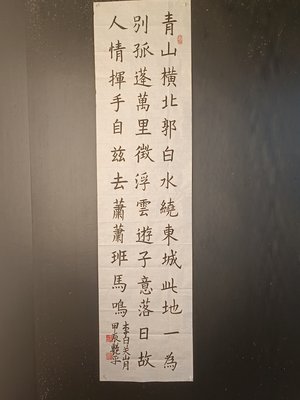 青山橫北郭白水繞東城此地一為
別孤蓬萬里徵浮雲遊子意落日故
人情揮手自兹去蕭蕭班馬鳴
李白关山月
甲辰